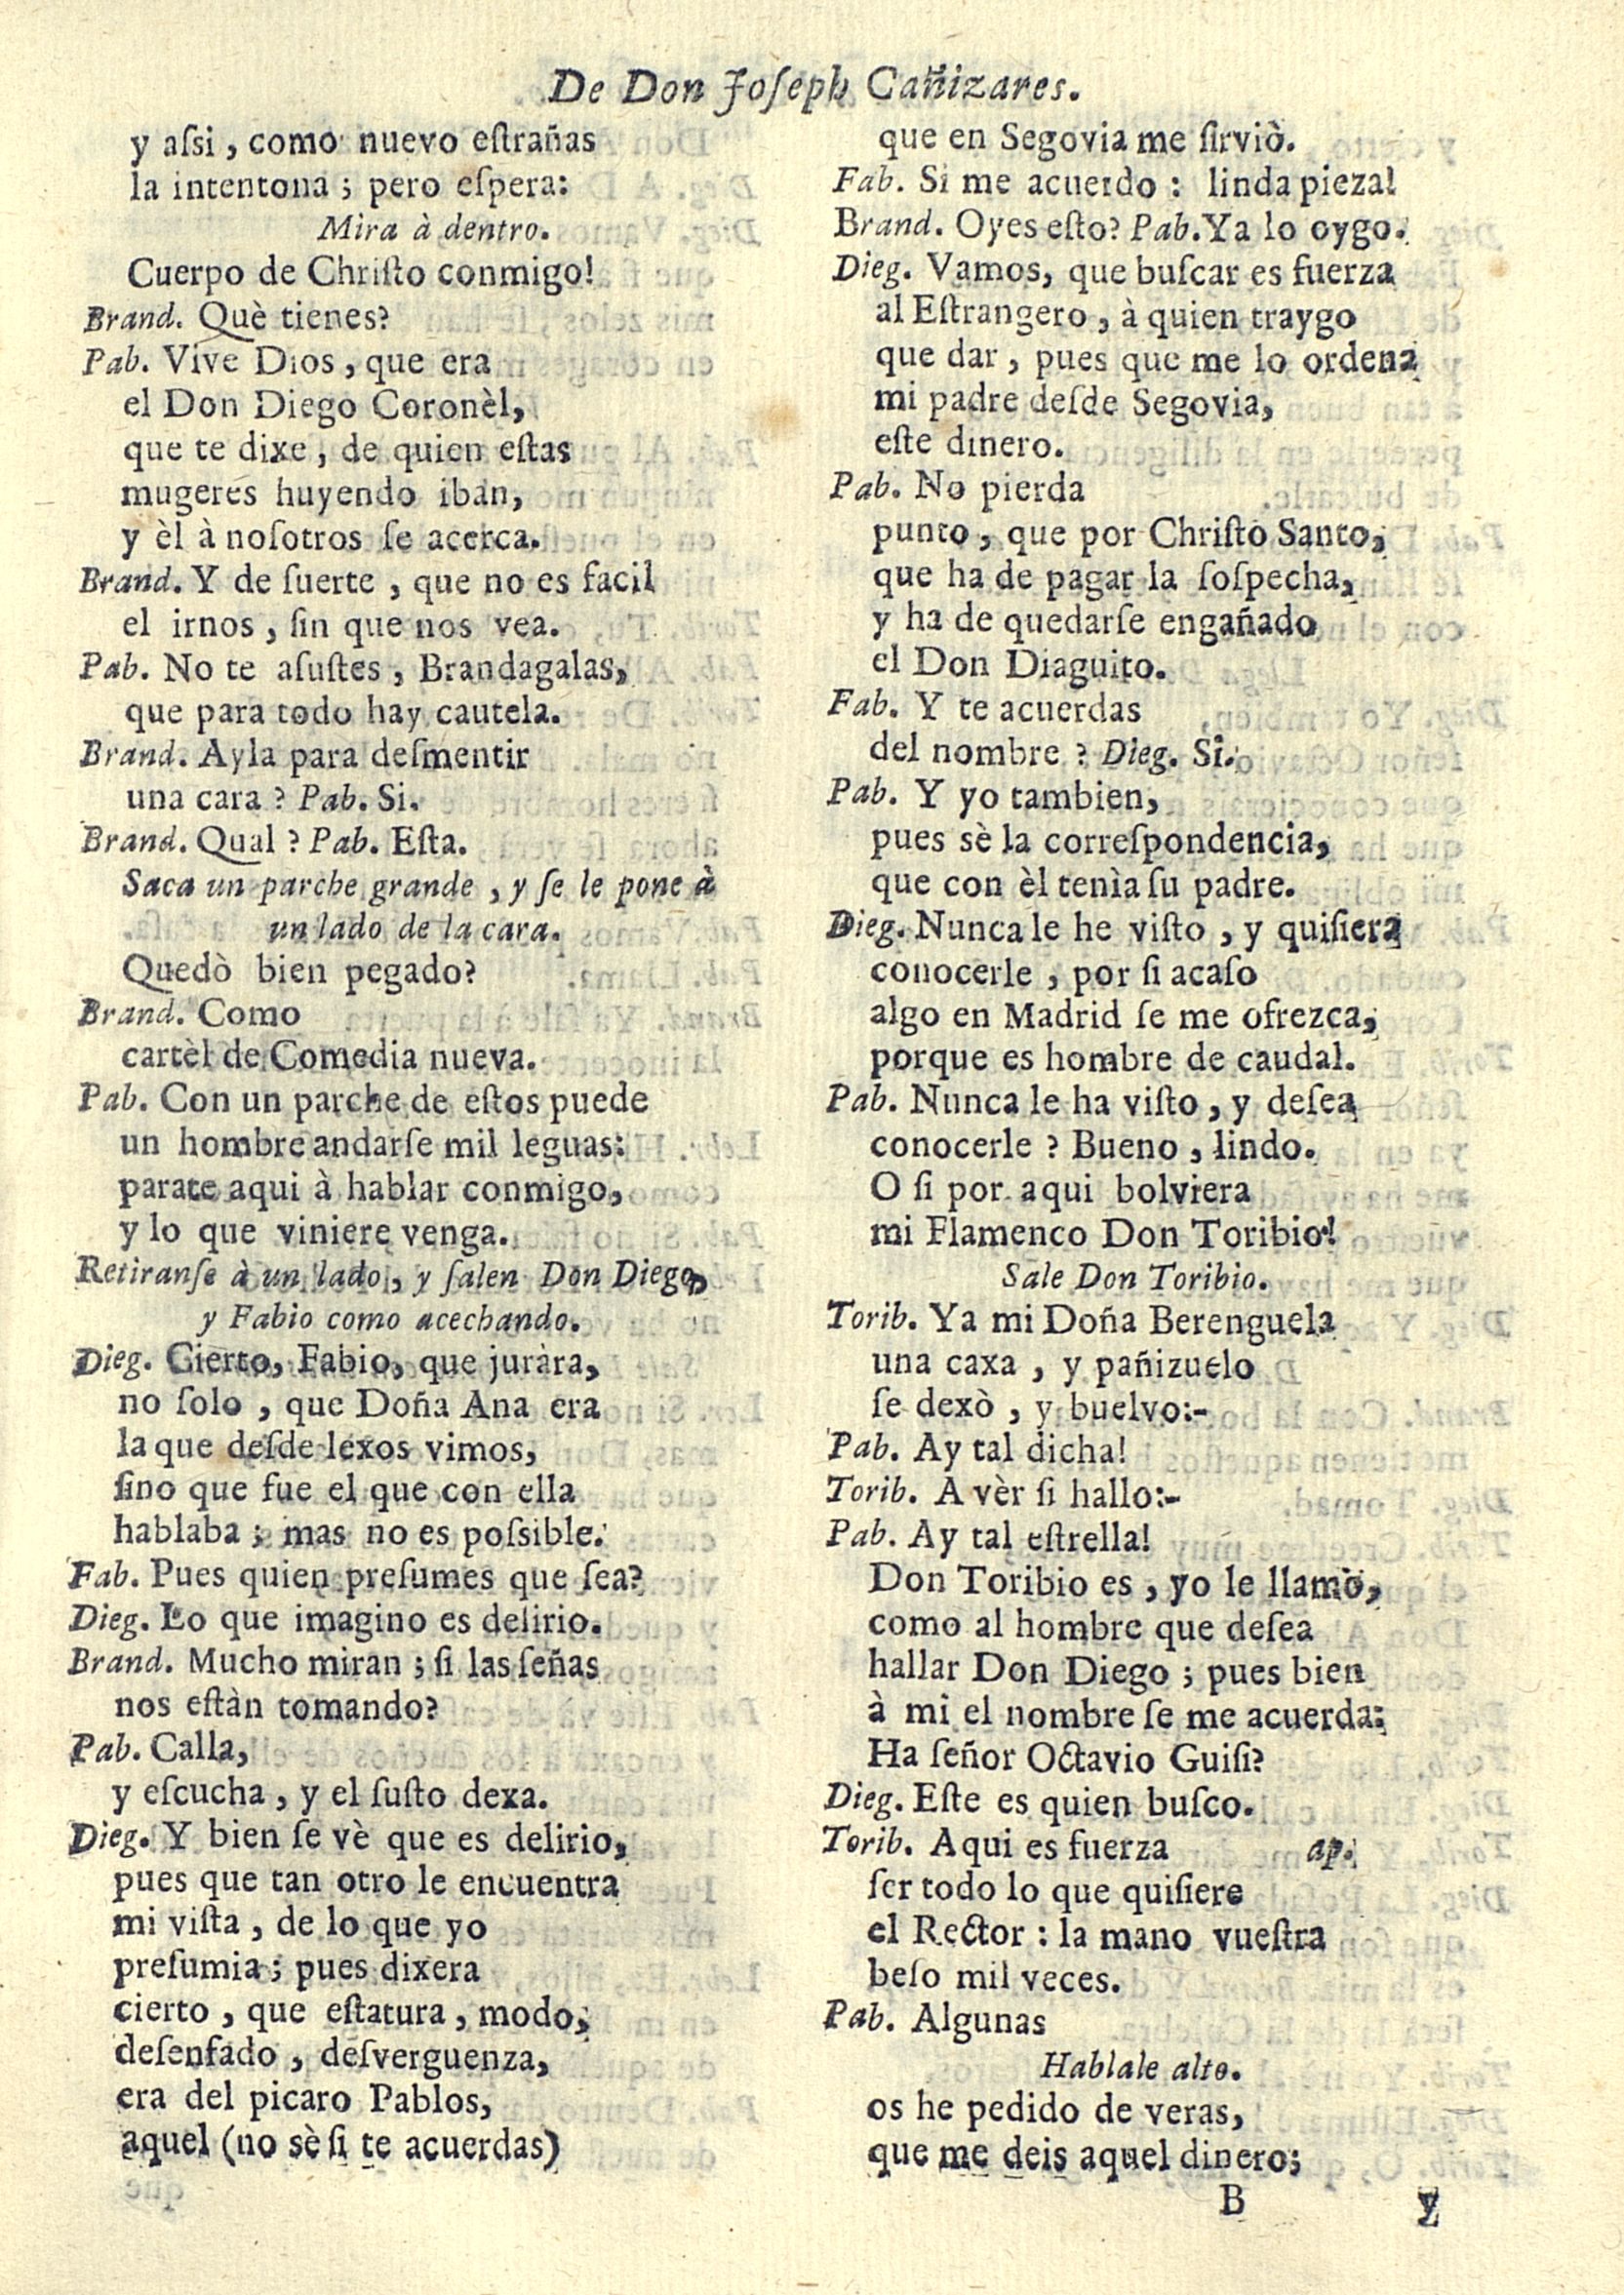 De Don Joſeph Cañizares.
y aſsi, como nuevo eſtrañas
la intentona; pero eſpera:
Mira à dentro.
Cuerpo de Chriſto conmigo!
Brand. Què tienes?
Pab. Vive Dios, que era
el Don Diego Coronèl,
que te dixe, de quien eſtas
mugeres huyendo iban,
y èl à noſotros ſe acerca.
Brand. Y de ſuerte, que no es facil
el irnos, ſin que nos vea.
Pab. No te aſuſtes, Brandagalas,
que para todo hay cautela.
Brand. Ayla para deſmentir
una cara? Pab. Si.
Brand. Qual? Pab. Eſta.
Saca un parche grande, y ſe le pone à
un lado de la cara.
Quedò bien pegado?
Brand. Como
cartèl de Comedia nueva.
Pab. Con un parche de eſtos puede
un hombre andarſe mil leguas:
parate aqui à hablar conmigo,
y lo que viniere venga.
Retiranſe à un lado, y ſalen Don Diego,
y Fabio como acechando.
Dieg. Cierto, Fabio, que juràra,
no ſolo, que Doña Ana era
la que deſde lexos vimos,
ſino que fue el que con ella
hablaba; mas no es poſsible.
Fab. Pues quien preſumes que ſea?
Dieg. Lo que imagino es delirio.
Brand. Mucho miran; ſi las ſeñas
nos eſtàn tomando?
Pab. Calla,
y eſcucha, y el ſuſto dexa.
Dieg. Y bien ſe vè que es delirio,
pues que tan otro le encuentra
mi viſta, de lo que yo
preſumia; pues dixera
cierto, que eſtatura, modo,
deſenfado, deſverguenza,
era del picaro Pablos,
aquel (no sè ſi te acuerdas)
que en Segovia me ſirviò.
Fab. Si me acuerdo: linda pieza!
Brand. Oyes eſto? Pab. Ya lo oygo.
Dieg. Vamos, que buſcar es fuerza
al Eſtrangero, à quien traygo
que dar, pues que me lo ordena
mi padre deſde Segovia,
eſte dinero.
Pab. No pierda
punto, que por Chriſto Santo,
que ha de pagar la ſoſpecha,
y ha de quedarſe engañado
el Don Diaguito.
Fab. Y te acuerdas
del nombre? Dieg. Si.
Pab. Y yo tambien,
pues sè la correſpondencia,
que con èl tenìa ſu padre.
Dieg. Nunca le he viſto, y quiſiera
conocerle, por ſi acaſo
algo en Madrid ſe me ofrezca,
porque es hombre de caudal.
Pab. Nunca le ha viſto, y deſea
conocerle? Bueno, lindo.
O ſi por aqui bolviera
mi Flamenco Don Toribio!
Sale Don Toribio.
Torib. Ya mi Doña Berenguela
una caxa, y pañizuelo
ſe dexò, y buelvo:-
Pab. Ay tal dicha!
Torib. A vèr ſi hallo:-
Pab. Ay tal eſtrella!
Don Toribio es, yo le llamo,
como al hombre que deſea
hallar Don Diego; pues bien
à mi el nombre ſe me acuerda:
Ha ſeñor Octavio Guiſi?
Dieg. Eſte es quien buſco.
Torib. Aqui es fuerza ap.
ſer todo lo que quiſiere
el Rector: la mano vueſtra
beſo mil veces.
Pab. Algunas
Hablale alto.
os he pedido de veras,
que me deis aquel dinero;
B y